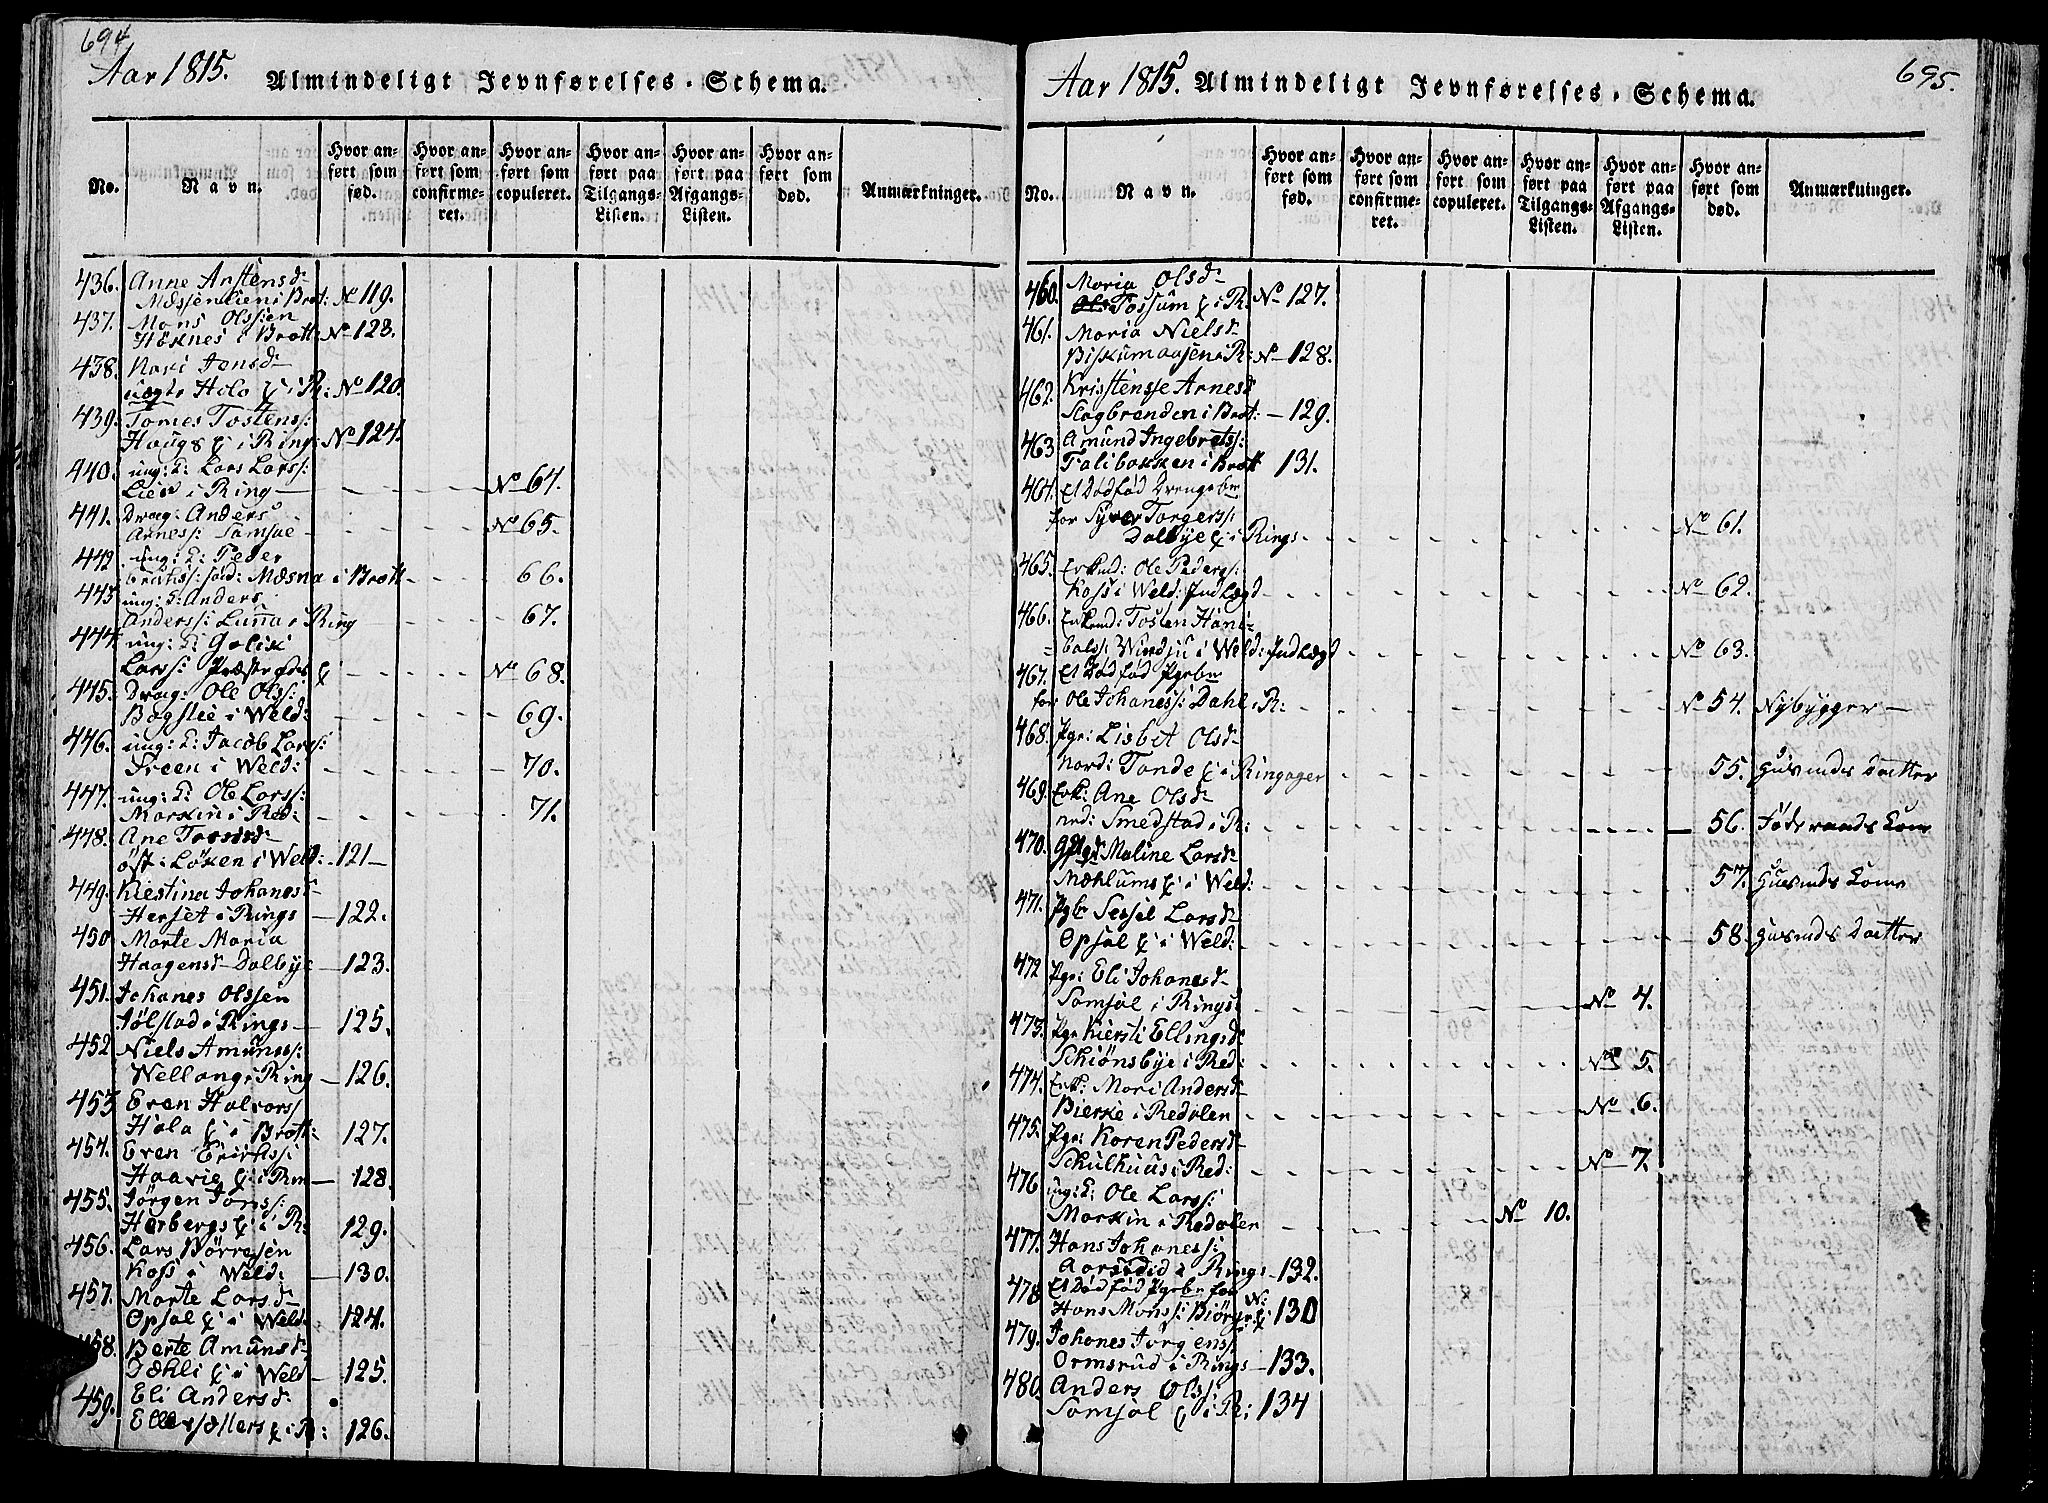 694
Aar 1815. Almindeligt Jevnførelses-Schema.
No. Navn. Hvor anført som fød. Hvor anført som confirmeret. Hvor anført som copuleret. Hvor anført paa Tilgangs-Listen. Hvor anført paa Afgangs-Listen. Hvor anført som død. Anmærkninger.
436. Anne Arstensd
Mæssenlien i Brot: No 119.
437. Mons Olssen
Höknes i Brott: No 123.
438. Kari Jensd
uægte Holo i R: No 120.
439. Tomes Tostens:
Haugs i Ring: No 124.
440. ung: k: Lars Lars:
Lien i Ring No 64.
441. Drag: Anders
Arness: Samsae No 65.
442. ung: k: Peder
Mæsna i Brott 66.
443. ung: k: Anders
Anderss: Lunna i Ring 67.
444. ung: k: Golik
Larss: No 68.
445. Drag: Ole Olss:
Bagslie i Weld: 69.
446. ung: k: Jacob Larss:
Freen i Weld: 70.
447. ung: k: Ole Larss:
Morskin i Red: 71.
448. Ane
öst: Löken i Weld: 121
449. Kiestina Johanesd
Herset i Rings 122.
450 Marte Maria
Haagensd Dalbye 123.
451. Johanes Olssen
Jölstad i Rings 125.
452 Niels Amunss:
Wellang i Ring 126.
453 Even Halvors
Hala i Brott: 127.
454. Even Erikss:
Haavie i Rin 128.
455. Jörgen Jons:
Herbergs i R: 129.
456. Lars Börresen
Koss i Weld: 130.
457. Marte Larsd
Opsal i Weld: 124.
458. Berte Amunsd
Dæhli i Weld 125.
459. Eli Andersd
i R: 126.
695.
Aar 1815. Almindeligt Jevnførelses-Schema.
No. Navn. Hvor anført som fød. Hvor anført som confirmeret. Hvor anført som copuleret. Hvor anført paa Tilgangs-Listen. Hvor anført paa Afgangs-Listen. Hvor anført som død. Anmærkninger.
460. Maria Olsd
Tossum i R: No 127.
461. Maria Nielsd
Biskumaasen i R: No 128.
462. Kristensse Arnesd
Slagbrenden i Brot: 129.
463 Amund Ingebretss:
Talibakken i Brott 131.
464. Et Dödföd Drengebn
for Syver Torgerss:
Dalbye i Rings No 61.
465. Enkmd: Ole Pederss:
Koss i Weld: Indlægd No 62.
466. Enkemd: Tosten Hani=
=balss: i Weld: Indlægd No 63.
467. Et Dödföd Pgebn
for: Ole Johaness: Dahl i R: No 54. Nybygger
468. Pge: Lisbet Olsd
nord: Tande i Ringager 55. Husmds Datter
469. Enk: Ane Olsd
nrd: Smedstad i R: 56. Föderaads Kone
470. Maline Larsd
Mæhlums i Weld: 57. Husmds Kone
471. Pgb: Sessel Larsd
Opsal i Weld: 58. Husmds Datter
472 Pge: Eli Johanesd
Samsal i Rings No 4.
473. Pge Kiersti Ellingsd
Schiönsbye i Red: No 5.
474. Enk: Mari Andersd
Bierke i Redalen No 6.
475. Pge: Karen Pedersd
Schulhuus i Red: No 7.
476 ung: k: Ole Larss:
Morskin i Redalen No 10.
477. Hans Johaness:
i Rings 132.
478 Et Dödföd Pgebn for
Hans Monss: Biörge W: 130
479. Johanes Jörgenss
Ormsrud i Rings 133.
480. Anders Olss:
Samsal i R: 134